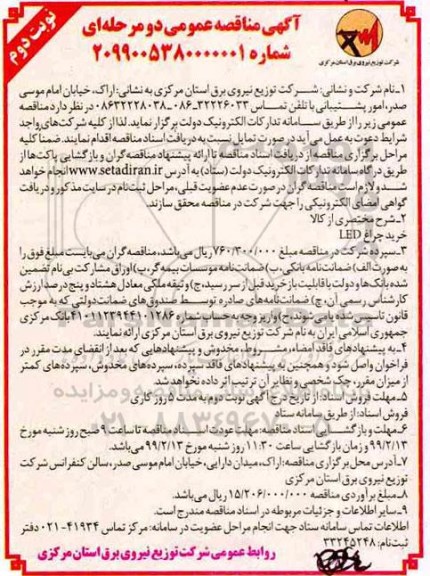 نوبت دوم
آگهی مناقصه عمومی دو مرحله‌ای
شماره ۲۰۹۹۰۰۵۳۸۰۰۰۰۰۰۱
شرکت توزیع نیروی برق استان مرکزی
۱-نام شرکت و نشانی: شرکت توزیع نیروی برق استان مرکزی به نشانی: اراک، خیابان امام موسی
صدر، امور پشتیبانی با تلفن تماس ۳۲۲۲۶۰۳۳-۰۸۶ ۰۸۶۳۲۲۲۸۰۳۸ در نظر دارد مناقصه
عمومی زیر را از طریق سامانه تدارکات الکترونیک دولت برگزار نماید. لذا از کلیه شرکت‌های واجد
شرایط دعوت به عمل می آید در صورت تمایل نسبت به دریافت اسناد مناقصه اقدام نمایند. ضمنا کلیه
مراحل برگزاری مناقصه از دریافت اسناد مناقصه تا ارائه پیشنهاد مناقصه گران و بازگشایی پاکت‌ها از
طریق درگاه سامانه تدارکات الکترونیک دولت (ستاد) به آدرس www.setadiran.ir انجام خواهد
شد و لازم است مناقصه گران در صورت عدم عضویت قبلی، مراحل ثبت‌نام در سایت مذکور و دریافت
گواهی امضای الکترونیکی را جهت شرکت در مناقصه محقق سازند.
۲-شرح مختصری از کالا
خرید چراغ LED
۳-سپرده شرکت در مناقصه مبلغ ۷۶۰/۳۰۰/۰۰۰ ریال می‌باشد، مناقصه گران می بایست مبلغ فوق را
به صورت الف) ضمانت‌نامه بانکی، ب) ضمانت‌نامه موسسات بیمه گر، پ) اوراق مشارکت بی نام تضمین
شده بانک‌ها و دولت با قابلیت بازخرید قبل از سررسید، ج) وثیقه ملکی معادل هشتاد و پنج درصد ارزش
کارشناس رسمی آن، چ) ضمانت‌نامه‌های صادره توسط صندوق‌های ضمانت دولتی که به موجب
قانون تاسیس شده یا می شوند، ح) واریز وجه به حساب شماره ۴۱۰۱۱۲۳۹۴۴۱۰۱۲۸۶ بانک مرکزی
جمهوری اسلامی ایران به نام شرکت توزیع نیروی برق استان مرکزی ارائه نمایند.
۴-به پیشنهادهای فاقد امضاء، مشروط، مخدوش و پیشنهادهایی که بعد از انقضای مدت مقرر در
فراخوان واصل شود و همچنین به پیشنهادهای فاقد سپرده، سپرده‌های مخدوش، سپرده‌های کمتر
از میزان مقرر، چک شخصی و نظایر آن ترتیب اثر داده نخواهد شد.
۵-مهلت فروش اسناد: از تاریخ درج آگهی نوبت دوم به مدت ۵ روز کاری
فروش اسناد: از طریق سامانه ستاد
۶-مهلت و بازگشایی اسناد مناقصه: مهلت عودت اسناد مناقصه تا ساعت ۹ صبح روز شنبه مورخ
۹۹/۲/۱۳ و زمان بازگشایی ساعت ۱۱:۳۰ روز شنبه مورخ ۹۹/۲/۱۳ می باشد.
۷-آدرس محل برگزاری مناقصه: اراک، میدان دارایی، خیابان امام موسی صدر، سالن کنفرانس شرکت
توزیع نیروی برق استان مرکزی
۸-مبلغ برآوردی مناقصه ۱۵/۲۰۶/۰۰۰/۰۰۰ ریال می باشد.
۹-سایر اطلاعات و جزئیات مربوطه در اسناد مناقصه مندرج است.
اطلاعات تماس سامانه ستاد جهت انجام مراحل عضویت در سامانه: مرکز تماس ۴۱۹۳۴-۰۲۱ دفتر
ثبت‌نام: ۳۳۲۴۵۲۴۸
روابط عمومی شرکت توزیع نیروی برق استان مرکزی